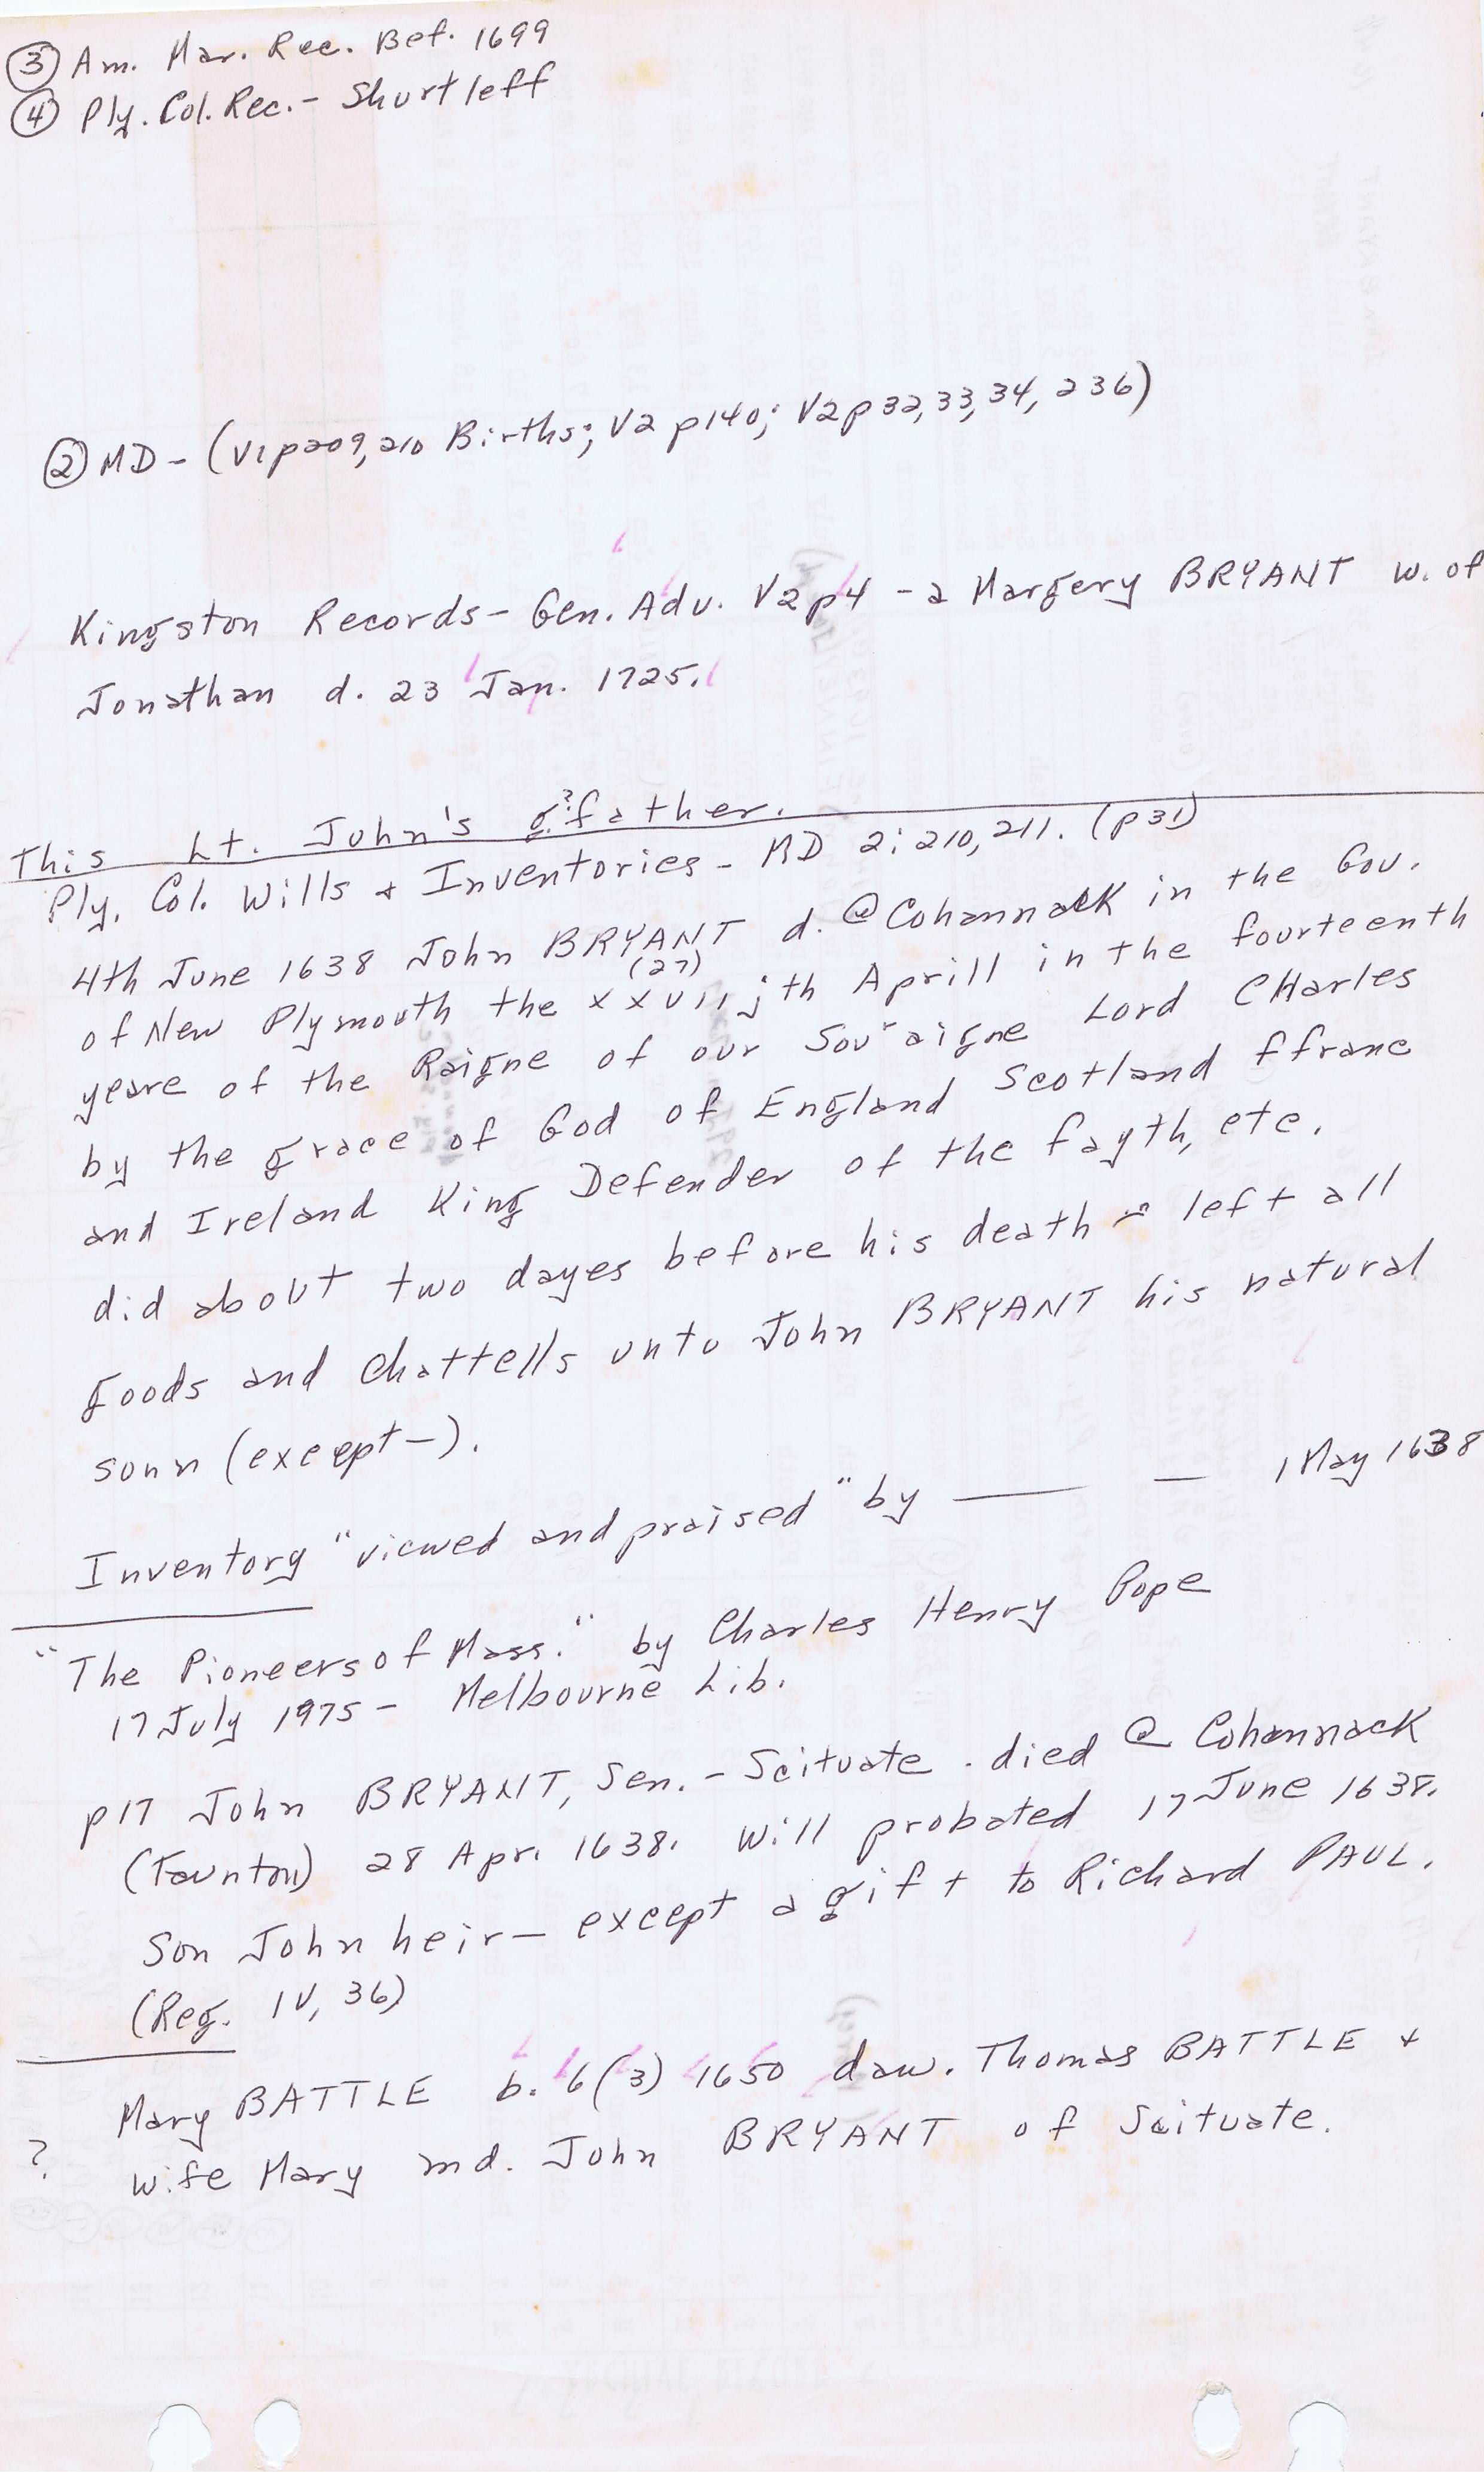 ③ Am. Mar. Rec. Bef. 1699
④ Ply. Col. Rec. - Shurtleff
② MD - (V1p209,210 Births; V2 p140; V2p32,33,34, 236)
Kingston Records - Gen. Adv. V2p4 - a Margery BRYANT w. of
Jonathan d. 23 Jan. 1725.
This Lt. John's g?father.
Ply. Col. Wills & Inventories - MD 2:210,211. (p31)
4th June 1638 John BRYANT d. @ Cohannack in the Gov.
(27)
of New Plymouth the xxviijth Aprill in the fourteenth
yeare of the Raigne of our Sov'aigne Lord CHarles
by the grace of God of England Scotland ffranc
and Ireland King Defender of the fayth, etc.
did about two dayes before his death - left all
goods and Chattells unto John BRYANT his natural
sonn (except-).
Inventory "viewed and praised" by —— — 1 May 1638
"The Pioneers of Mass." by Charles Henry Pope
17 July 1975 - Melbourne Lib.
p17 John BRYANT, Sen. - Scituate. died @ Cohannack
(Taunton) 28 Apr. 1638. Will probated 17 June 1638.
Son John heir - except a gift to Richard PAUL.
(Reg. IV, 36)
Mary BATTLE b. 6(3) 1650 dau. Thomas BATTLE &
? wife Mary md. John BRYANT of Scituate.